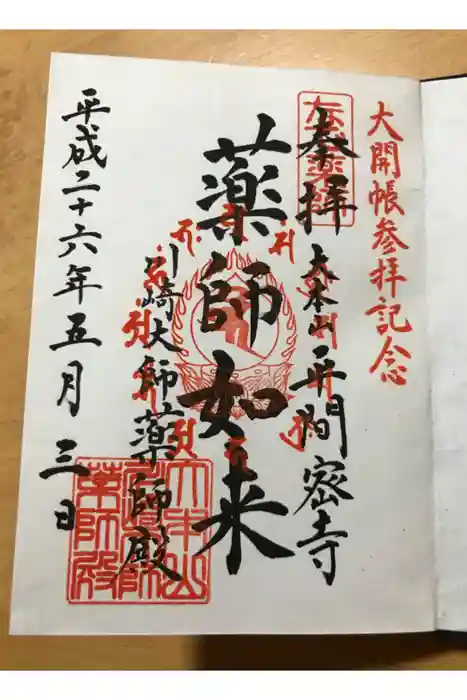 大開帳参拝記念
奉拝 大本山 平間密寺
薬師如来
川崎大師薬師殿
平成二十六年五月三日
大本山
薬師殿